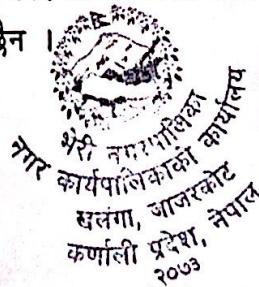 छैन ।
भेरी नगरपालिका
नगर कार्यपालिकाको कार्यालय
खलंगा, जाजरकोट
कर्णाली प्रदेश, नेपाल
२०७३